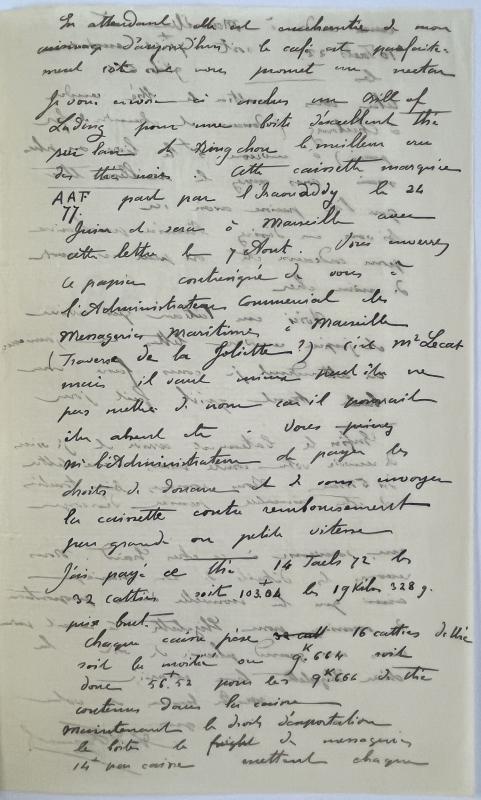 En attendant elle est enchantée de mon
arrivage d'aujourd'hui le café est parfaite-
ment rôti et nous promet un nectar
Je vous envoie ci inclus un Bill of
Lading pour une boite d'excellent thé
pé lan de Ning chow le meilleur cru
des thés noirs. Cette caissette marquée
AAF
77. part par l'Iraouaddy le 24
Juin et sera à Marseille avec
cette lettre le 7 Aout. Vous enverrez
ce papier contresigné de vous à
l'Administrateur Commercial des
Messageries Maritimes à Marseille
(Traverse de la Joliette?) C'est Mr Lecat
mais il vaut mieux peut être ne
pas mettre de nom car il pourrait
être absent etc. Vous prierez
M. l'Administrateur de payer les
droits de douane et de vous envoyer
la caissette contre remboursement
par grande ou petite vitesse
J'ai payé ce thé 14 Taels 72 les
32 catties soit 103.04 les 19 Kilos 328 g.
prix brut.
Chaque caisse pèse 16 catties de thé
soit la moitié ou 9K.664 soit
donc 56.52 pour les 9K664 de thé
contenus dans la caisse
Maintenant les droits d'exportation
la boite le freight des messageries
14 par caisse mettent chaque